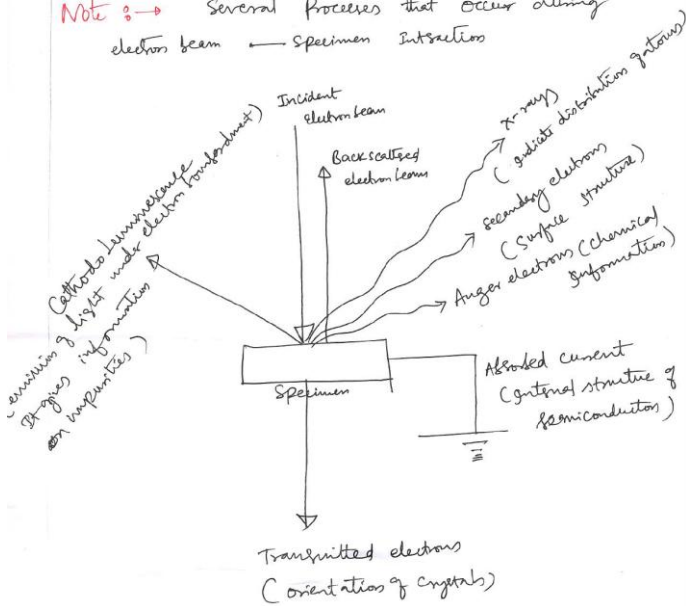 Note :→ Several Processes that occur during
electron beam — Specimen Intraction
Incident
electron beam
Backscattered
electron beam
x-rays
(indicate distribution of atoms)
secondary electrons
(Surface structure)
Auger electrons (chemical
information)
Cathodo Luminescence
(emission of light under electron bombardment)
It gives information
on impurities)
Specimen
Absorbed current
(internal structure of
semiconductors)
Transmitted electrons
(orientation of crystals)